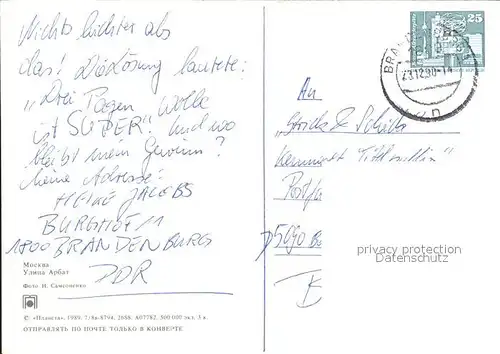 Nichts leichter als
das! Die Lösung lautete:
"Drei Tagen Wolle
ist SUPER". Und wo
bleibt mein Gewinn?
Meine Adresse:
HEIKE JACOBS
BURGHOF 11
1800 BRANDENBURG
DDR
Москва
Улица Арбат
Фото Н. Самсоненко
© «Планета», 1989. 7/8а-8794. 2088. А07782. 500 000 экз. 3 к.
ОТПРАВЛЯТЬ ПО ПОЧТЕ ТОЛЬКО В КОНВЕРТЕ
25
BRAN
An
& Schick
Kennwort
Postfa
5090
privacy protection
Datenschutz